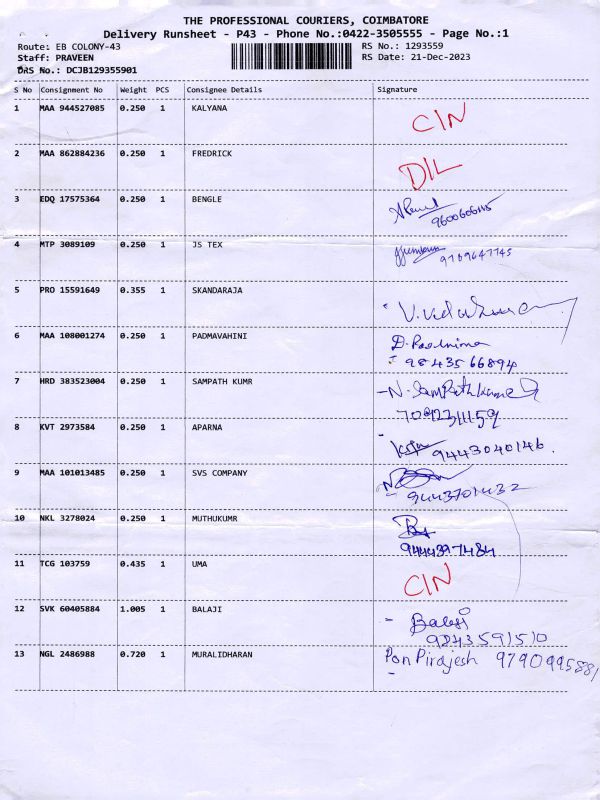 THE PROFESSIONAL COURIERS, COIMBATORE
Delivery Runsheet - P43 - Phone No.:0422-3505555 - Page No.:1
Route: EB COLONY-43 RS No.: 1293559
Staff: PRAVEEN RS Date: 21-Dec-2023
DRS No.: DCJB129355901
S No Consignment No Weight PCS Consignee Details Signature
1 MAA 944527085 0.250 1 KALYANA C/N
2 MAA 862884236 0.250 1 FREDRICK D/L
3 EDQ 17575364 0.250 1 BENGLE
4 MTP 3089109 0.250 1 JS TEX
9789647745
5 PRO 15591649 0.355 1 SKANDARAJA
6 MAA 108001274 0.250 1 PADMAVAHINI
9843566894
7 HRD 383523004 0.250 1 SAMPATH KUMR N. Sampathkumar
8 KVT 2973584 0.250 1 APARNA 9443040146.
9 MAA 101013485 0.250 1 SVS COMPANY
9443701432
10 NKL 3278024 0.250 1 MUTHUKUMR
9444397484
11 TCG 103759 0.435 1 UMA C/N
12 SVK 60405884 1.005 1 BALAJI - Balaji
9843591510
13 NGL 2486988 0.720 1 MURALIDHARAN Pon Pirajesh 9790995881